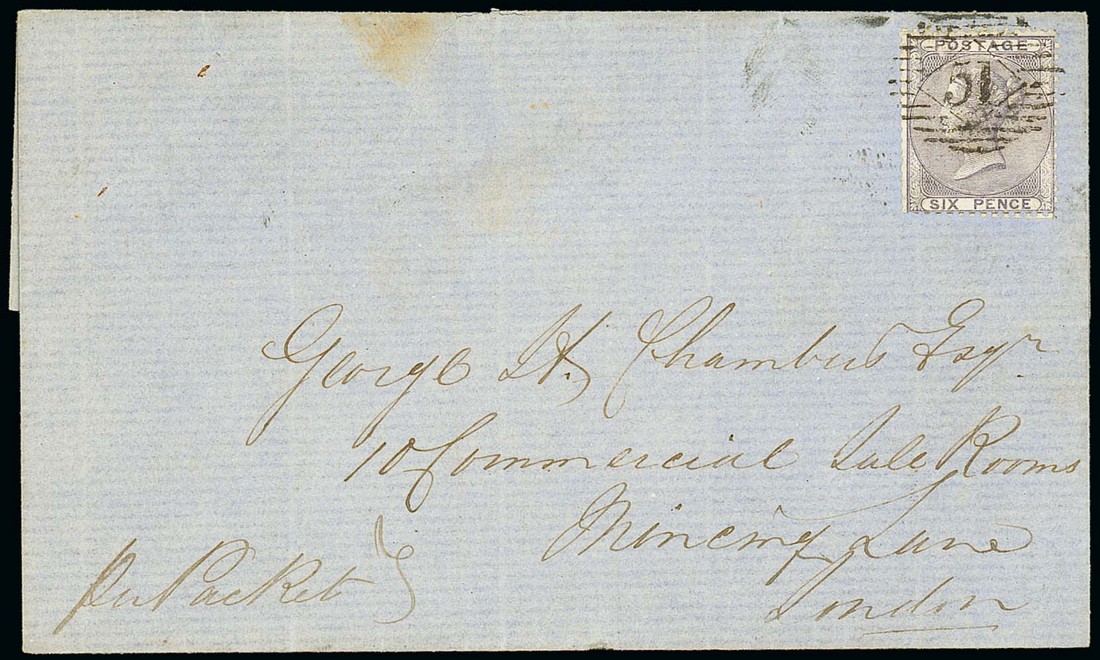 POSTAGE
51
SIX PENCE
George H. Chambers Esqr
10 Commercial Sale Rooms
Mincing Lane
London
Per Packet